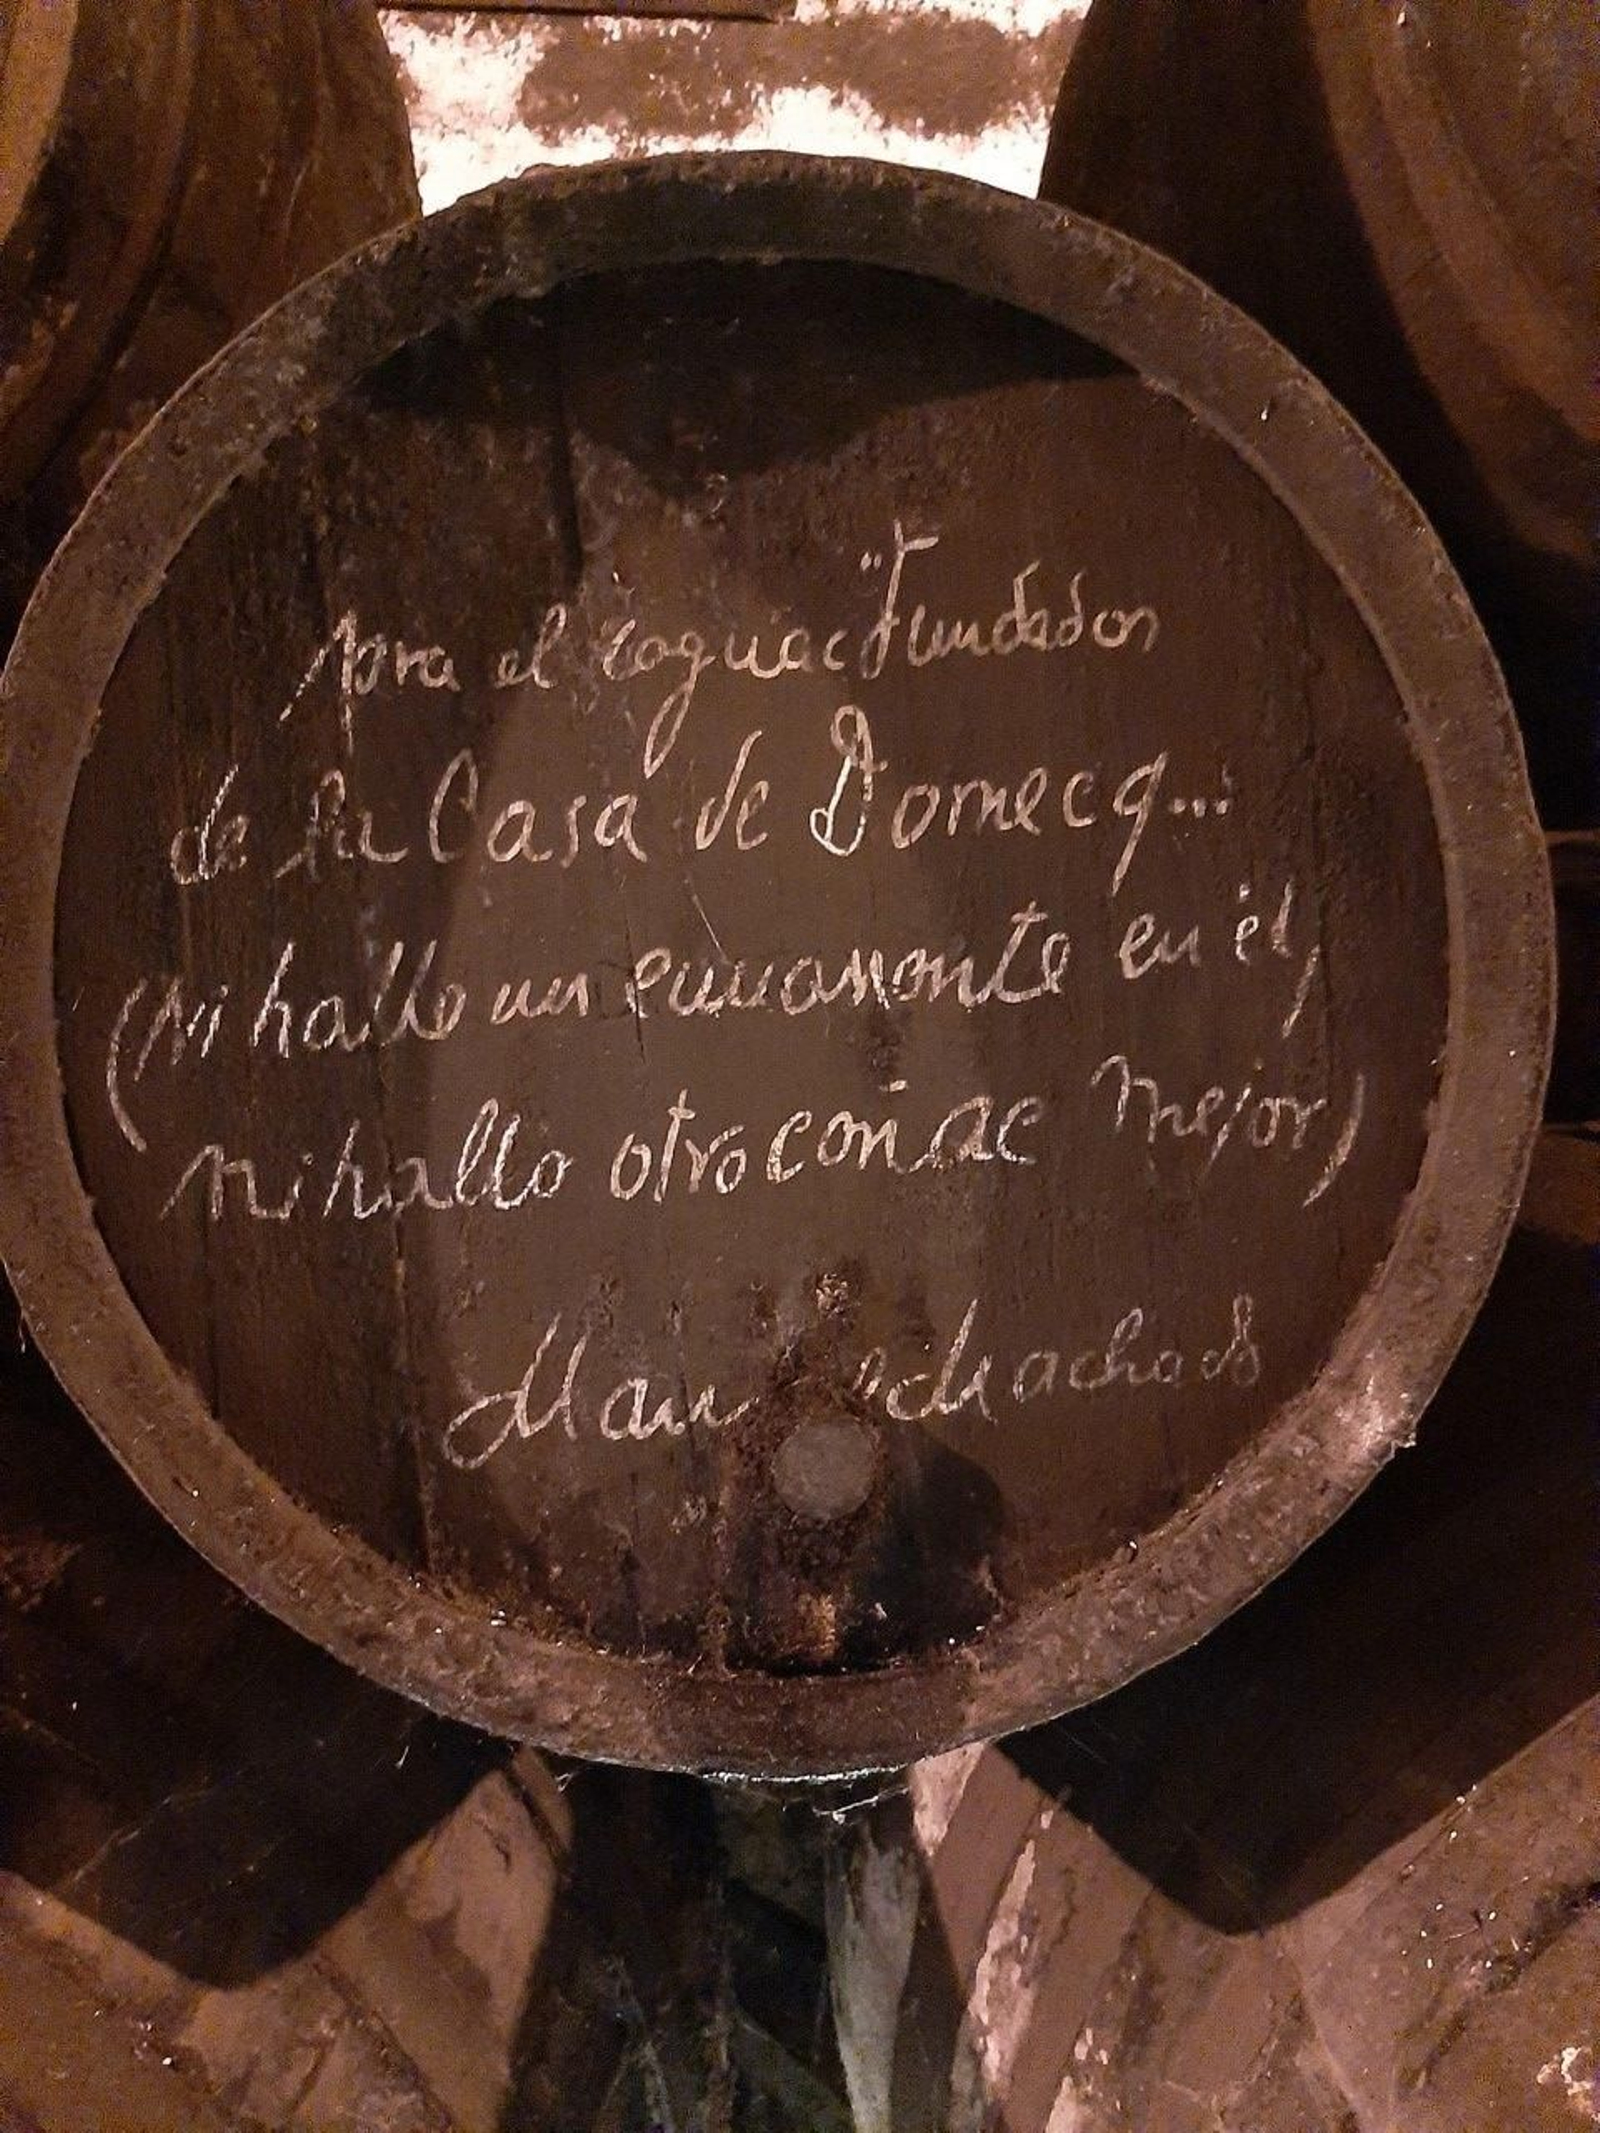 para el cognac "Fundador
de la Casa de Domecq...
(Ni hallo un en él,
ni hallo otro coñac mejor)
Manuel Machado